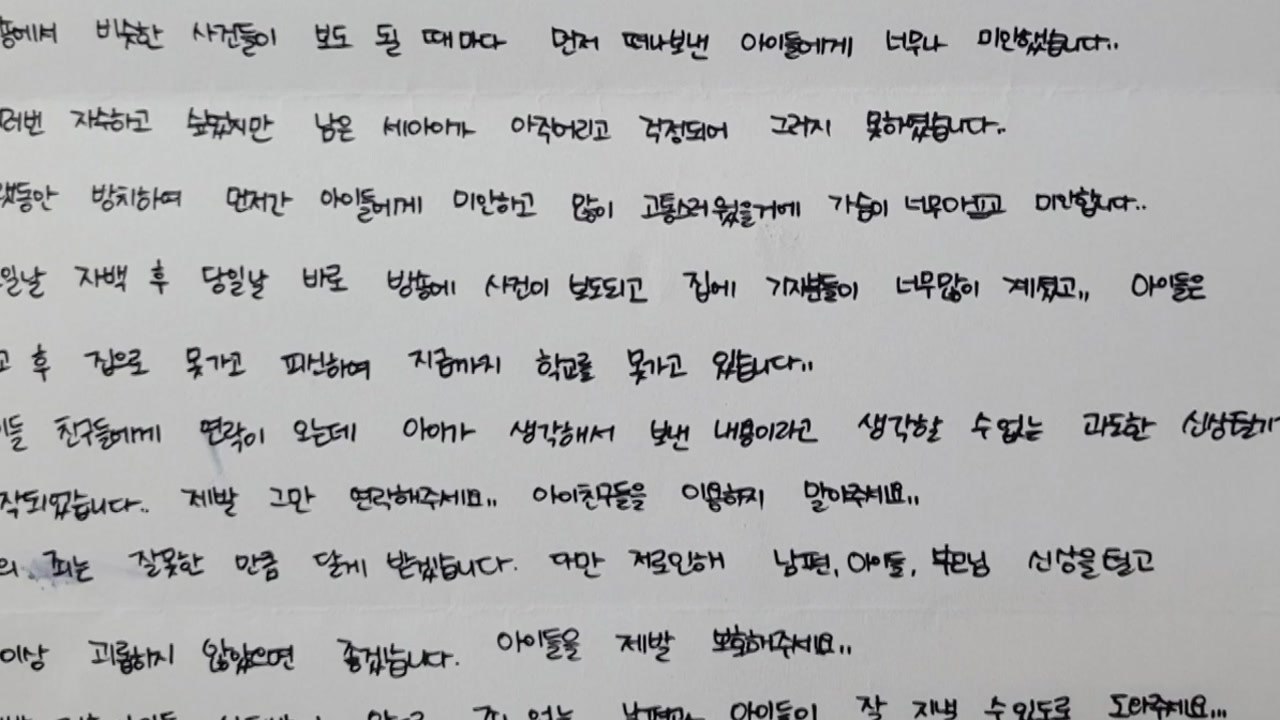 비슷한 사건들이 보도 될 때마다 먼저 떠나보낸 아이들에게 너무나 미안했습니다..
자수하고 싶었지만 남은 세아이가 아직어리고 걱정되어 그러지 못하였습니다..
방치하여 먼저간 아이들에게 미안하고 많이 고통스러웠을거에 가슴이 너무아프고 미안합니다..
자백 후 당일날 바로 방송에 사건이 보도되고 집에 기자분들이 너무많이 계셨고,, 아이들은
후 집으로 못가고 피신하여 지금까지 학교를 못가고 있습니다..
친구들에게 연락이 오는데 아이가 생각해서 보낸 내용이라고 생각할 수 없는 과도한 신상털기
제발 그만 연락해주세요,, 아이친구들을 이용하지 말아주세요,,
죄는 잘못한 만큼 달게 받겠습니다. 다만 저로인해 남편, 아이들, 부모님 신상을 털고
괴롭히지 않았으면 좋겠습니다. 아이들을 제발 보호해주세요..
없는 남편과 아이들이 잘 지낼 수있도록 도와주세요...